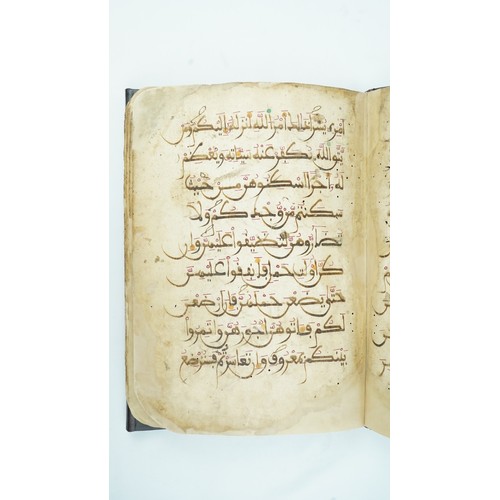 أمره يسرا ذلك أمر الله أنزله إليكم ومن
يتق الله يكفر عنه سيئاته ويعظم
له أجرا أسكنوهن من حيث
سكنتم من وجدكم ولا
تضاروهن لتضيقوا عليهن وإن
كن أولت حمل فأنفقوا عليهن
حتى يضعن حملهن فإن أرضعن
لكم فـاتوهن أجورهن وأتمروا
بينكم بمعروف وإن تعاسرتم فسترضع